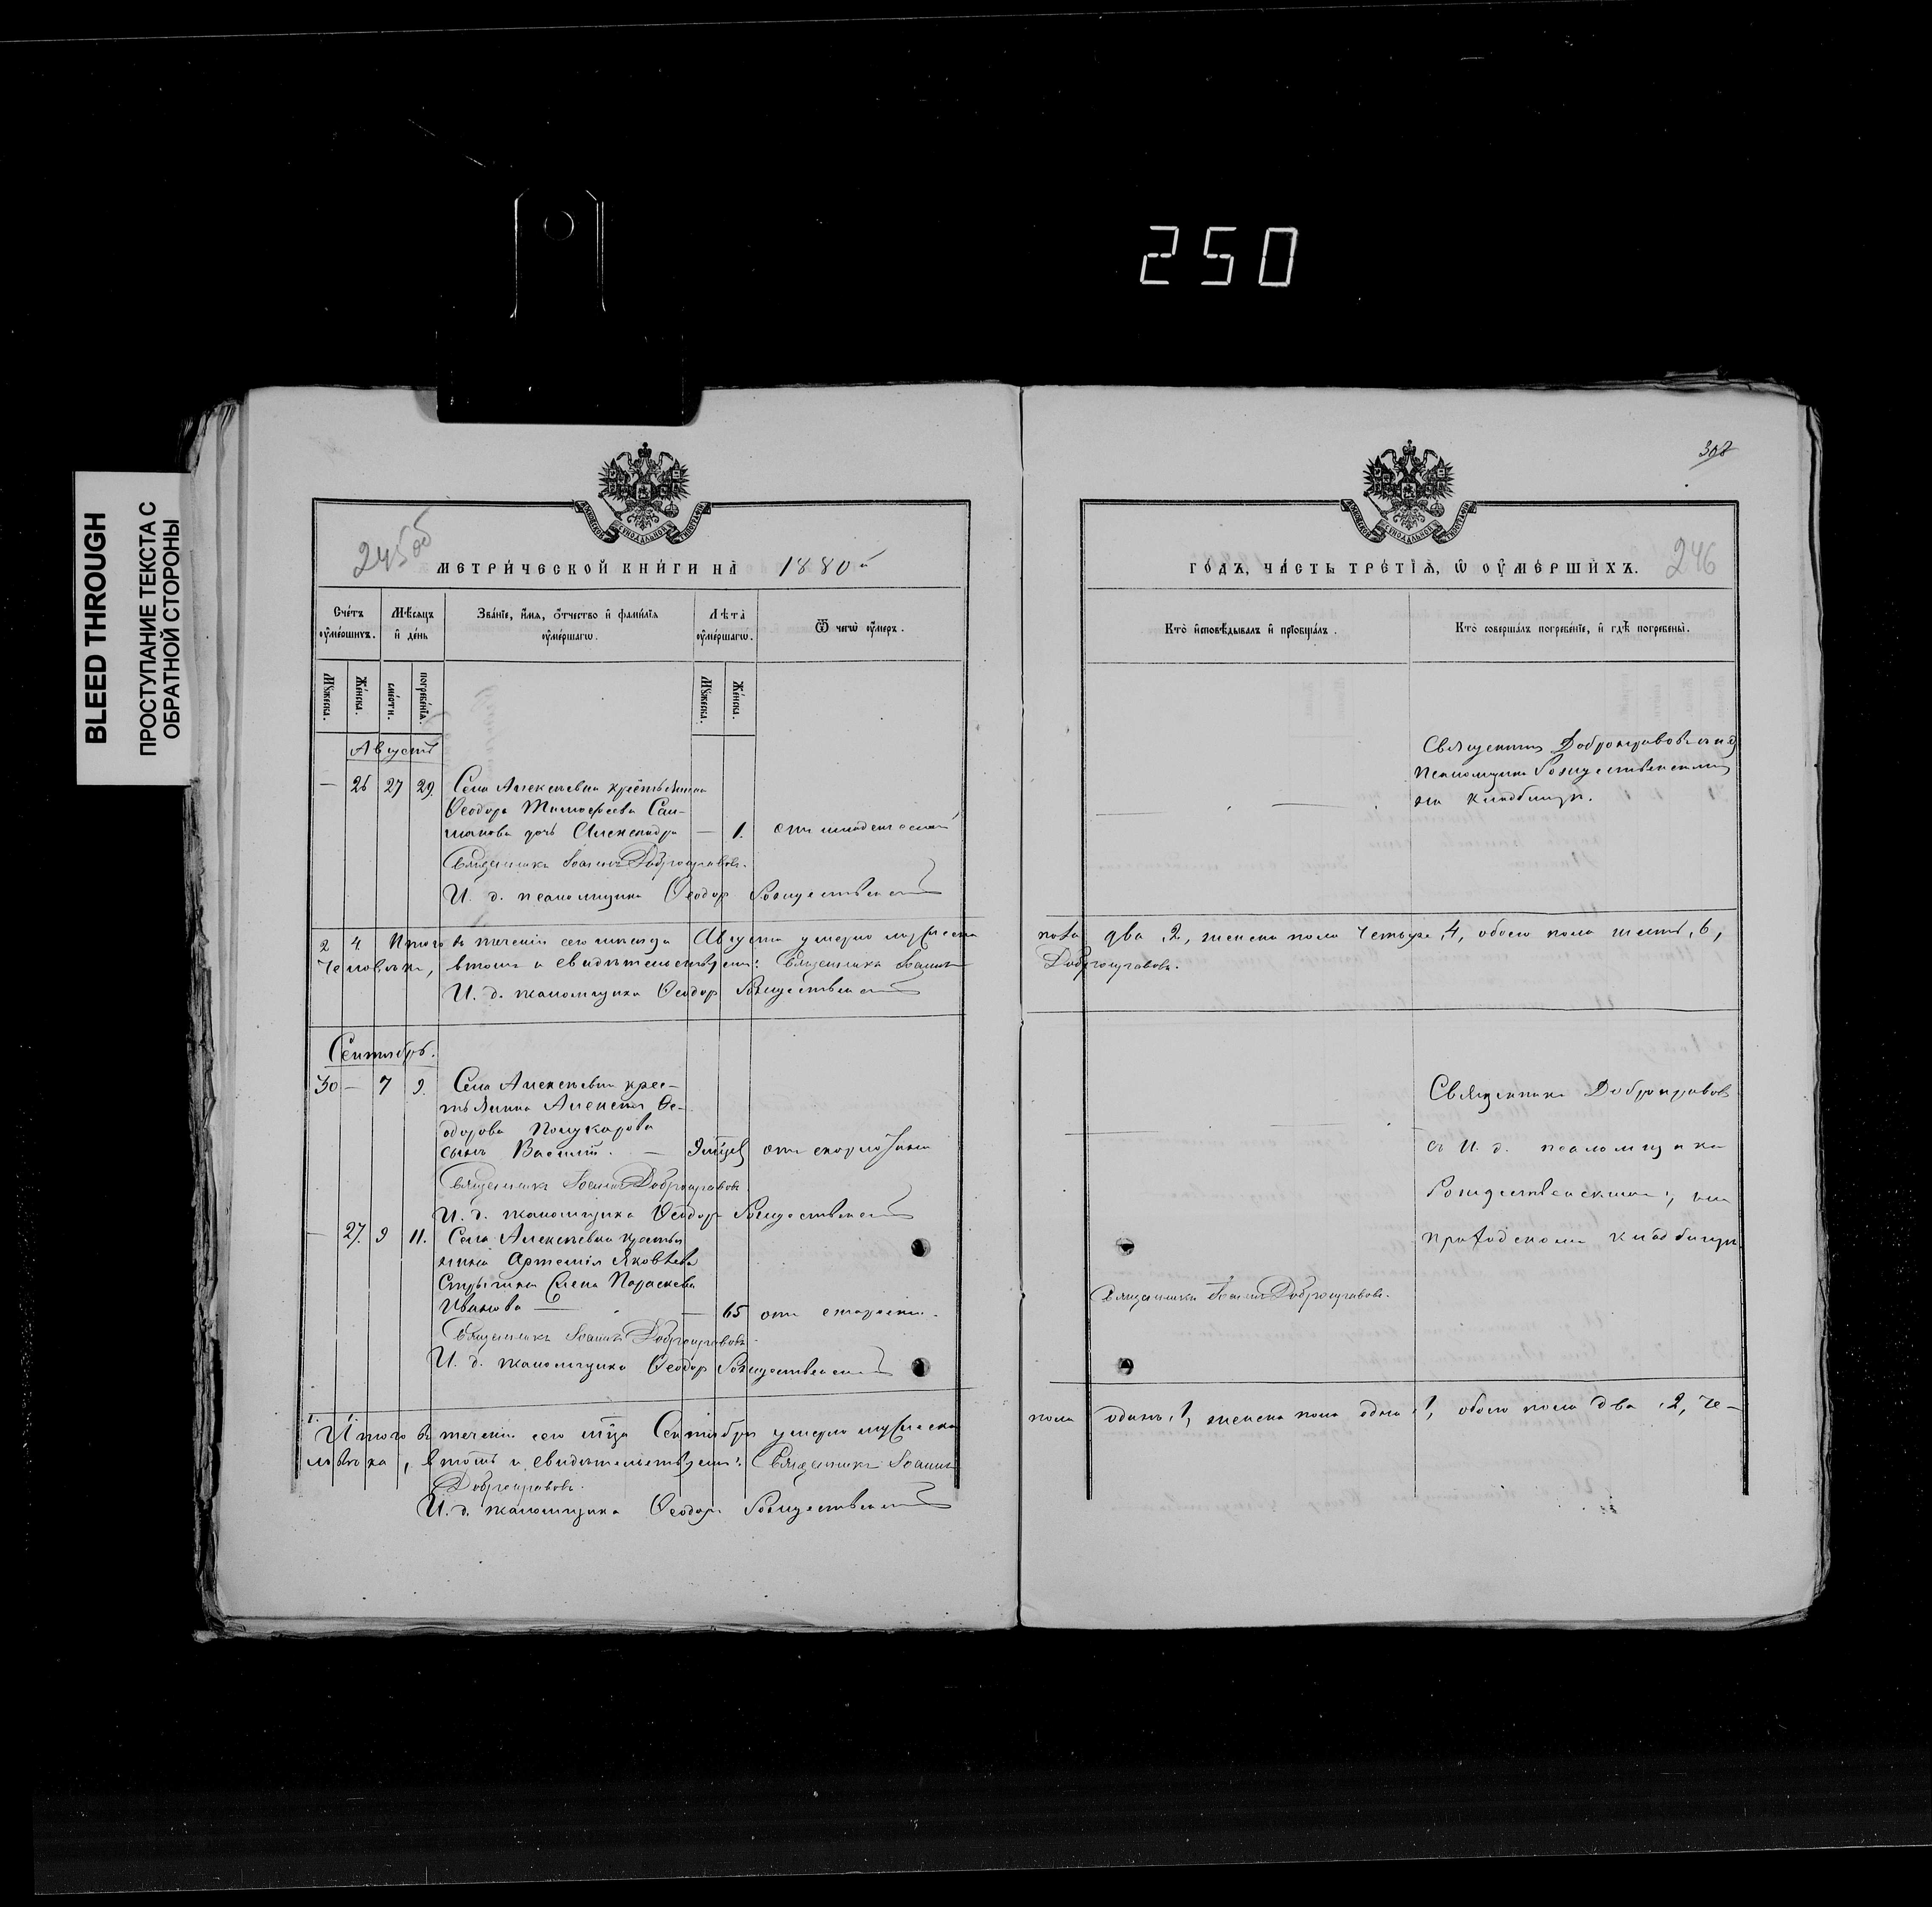 250
BLEED THROUGH
ПРОСТУПАНИЕ ТЕКСТА С
ОБРАТНОЙ СТОРОНЫ
245об
МЕТРИ́ЧЕСКОЙ КНИ́ГИ НА̀ 1880й
Сче́тъ оу҆ме́ршихъ.
Мѣ́сяцъ и҆ де́нь
Зва́нїе, и҆́мя, ѻ҆́тчество и҆ фами́лїя оу҆ме́ршагѡ.
Лѣ́та оу҆ме́ршагѡ.
Ѿ чегѡ̀ оу҆́меръ.
Мꙋ́жеска.
Же́нска.
сме́рти.
погребе́нїя.
Мꙋ́жеска.
Же́нска.
Августъ
— 26 27 29. Села Алексѣевки крестьянина
Ѳеодора Тимоѳеева
дочь Александра — 1. отъ младенческой
Священникъ Іоаннъ Добронравовъ.
И. д. псаломщика Ѳеодоръ Рождественскій
2 4 Итого въ теченіи сего мѣсяца Августа умерло мужеска
человѣкъ, въ томъ и свидѣтельствуемъ: Священникъ Іоаннъ
И. д. псаломщика Ѳеодоръ Рождественскій
Сентябрь.
30 — 7 9. Села Алексѣевки крес-
тьянина Алексѣя Ѳе-
одорова Поликарова
сынъ Василій. — 9 мѣсяц отъ
Священникъ Іоаннъ Добронравовъ.
И. д. псаломщика Ѳеодоръ Рождественскій
— 27. 9 11. Села Алексѣевки крестья
нина Артемія Яковлева
жена Параскева
Иванова — — 65 отъ старости.
Священникъ Іоаннъ Добронравовъ.
И. д. псаломщика Ѳеодоръ Рождественскій
1. 1.
Итого въ теченіи сего мѣсяца Сентября умерло мужеска
ловѣка, въ томъ и свидѣтельствуемъ: Священникъ Іоаннъ
Добронравовъ.
И. д. псаломщика Ѳеодоръ Рождественскій
308
246
ГО́ДЪ, ЧА́СТЬ ТРЕ́ТЇЯ, Ѡ҆ ОУ҆МЕ́РШИХЪ.
Кто̀ и҆сповѣ́дывалъ и҆ прїѡбща́лъ.
Кто̀ соверша́лъ погребе́нїе, и҆ гдѣ̀ погребены̀.
Священникъ Добронравовъ съ и д
псаломщика Рождественскимъ
на кладбищѣ.
пола два ,2, женска пола четыре ,4, обоего пола шесть ,6,
Добронравовъ.
Священникъ Добронравовъ
съ И. д. псаломщика
Рождественскимъ, на
приходскомъ кладбищѣ
Священникъ Іоаннъ Добронравовъ.
пола одинъ ,1, женска пола одна ,1, обоего пола два ,2, че-